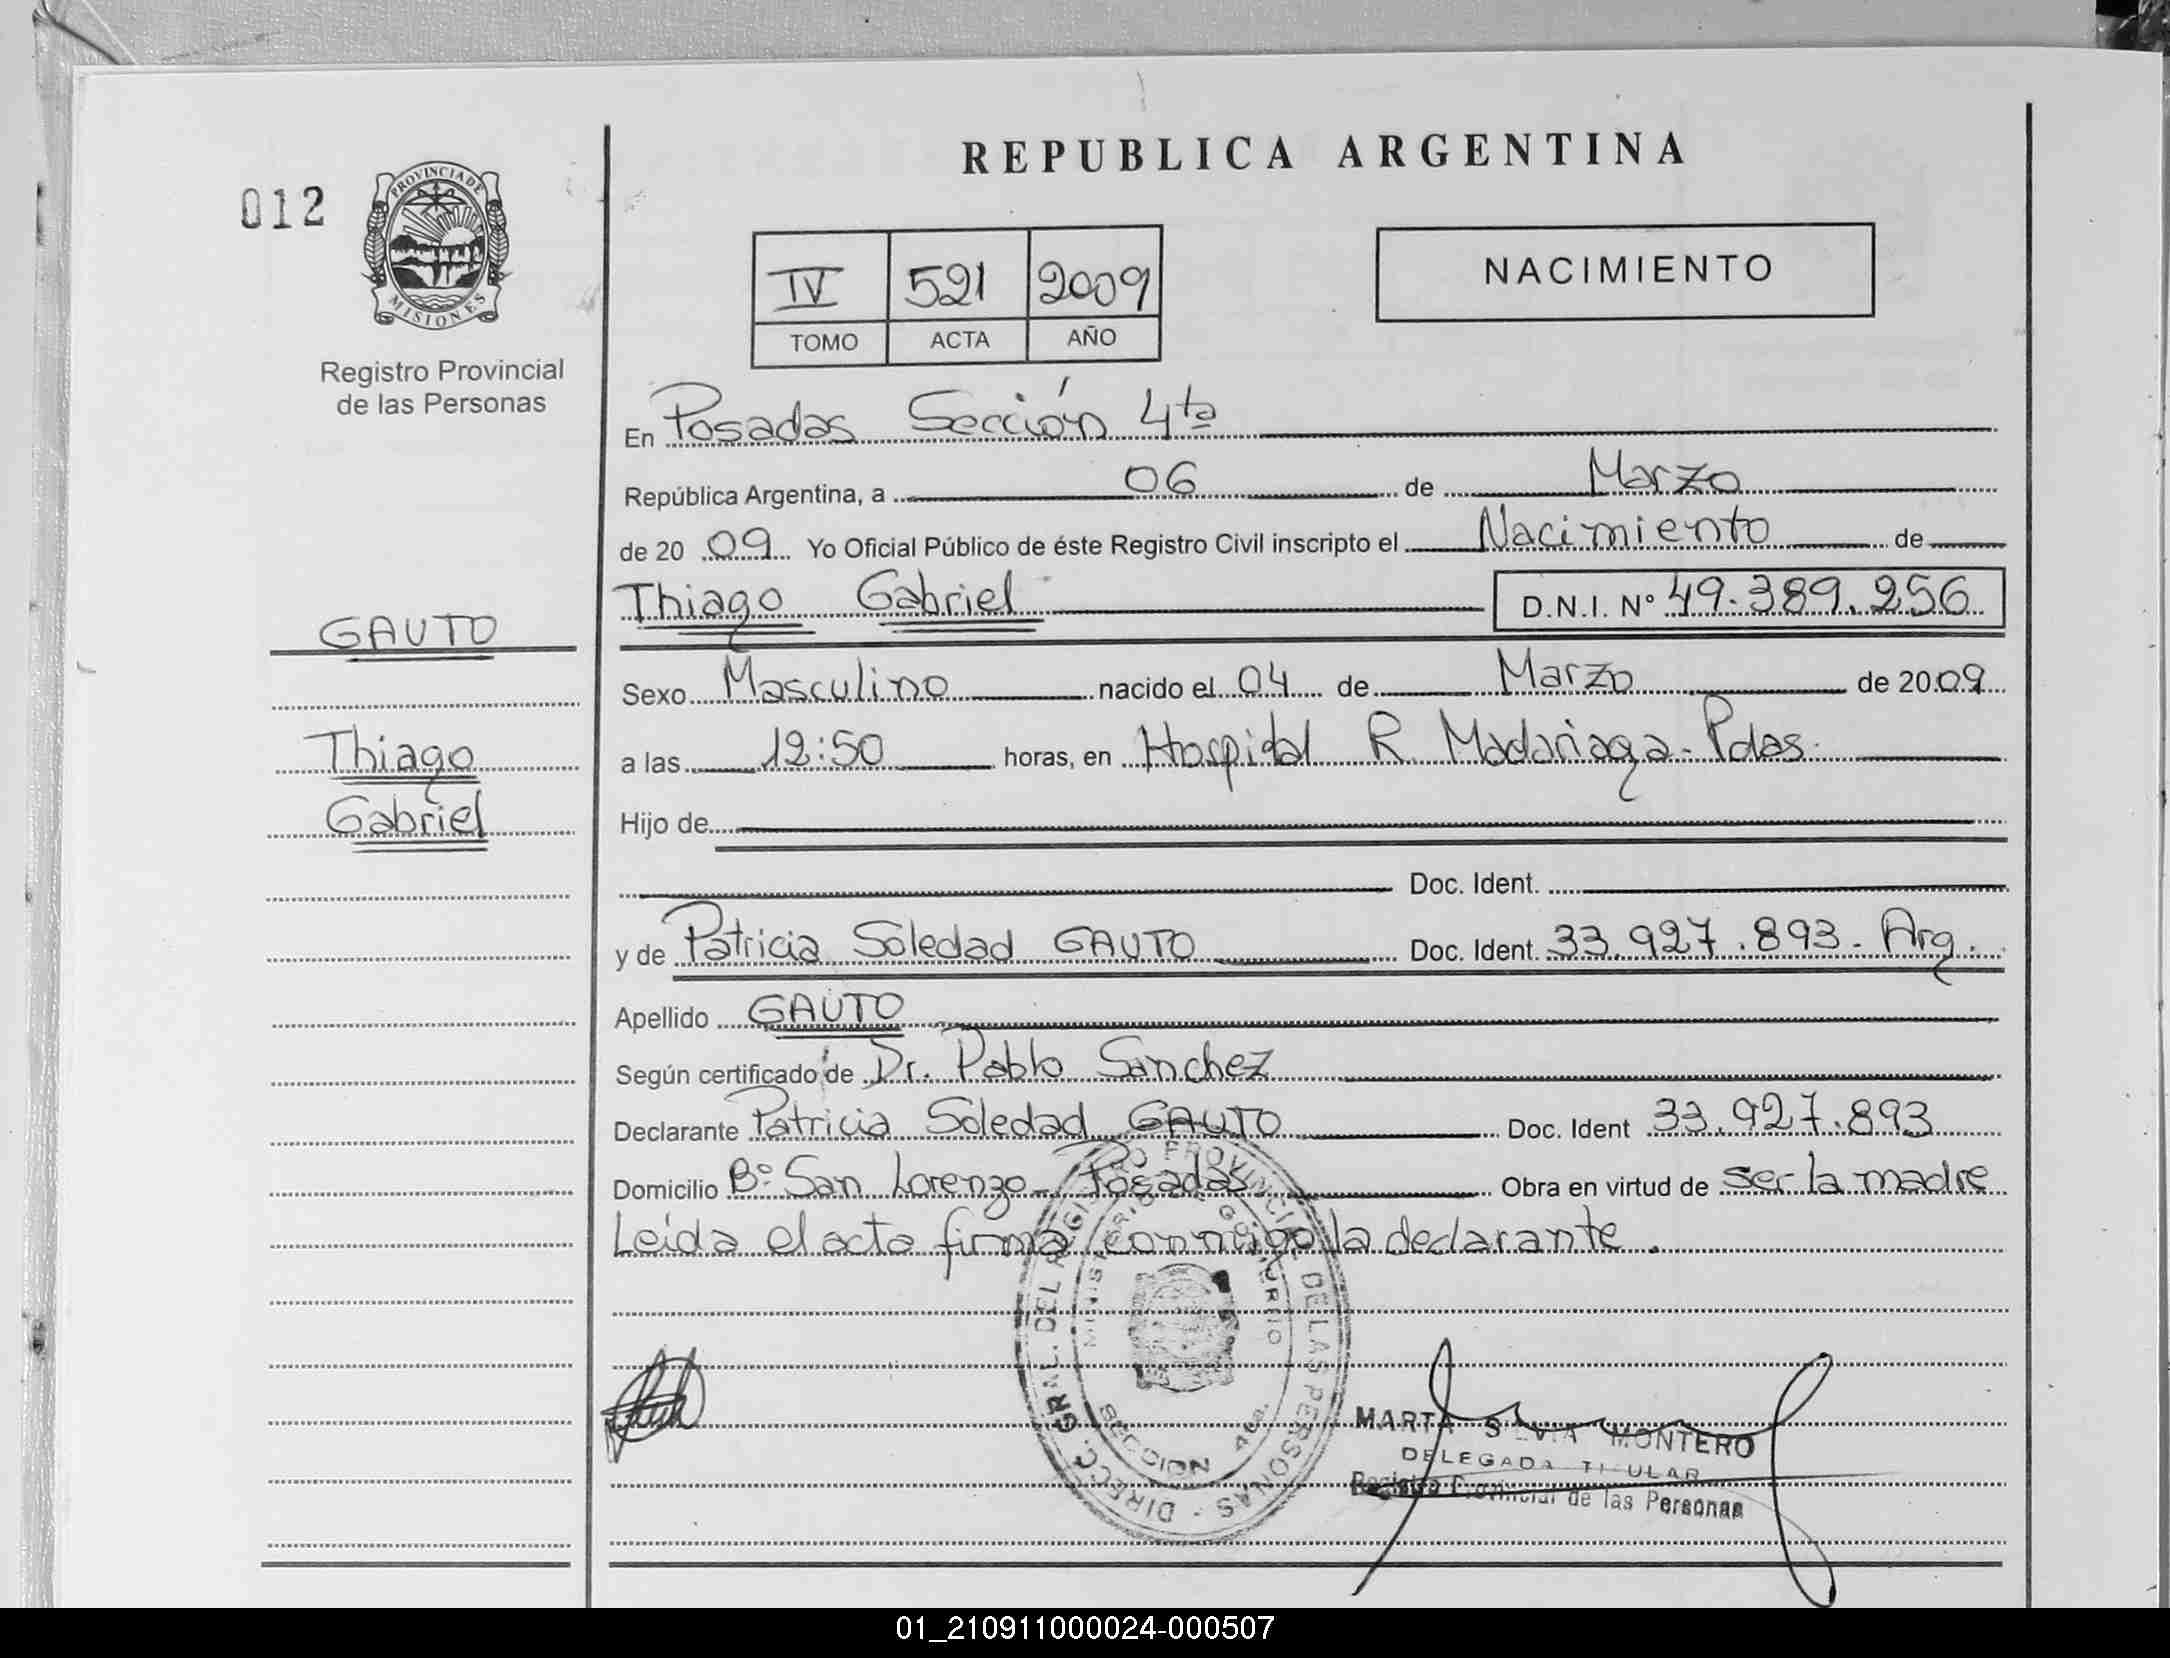 REPUBLICA ARGENTINA
012
PROVINCIA DE
MISIONES
Registro Provincial
de las Personas
IV 521 2009
TOMO ACTA AÑO
NACIMIENTO
En Posadas Sección 4ta
República Argentina, a 06 de Marzo
de 20 09 Yo Oficial Público de éste Registro Civil inscripto el Nacimiento de
Thiago Gabriel D.N.I. Nº 49.389.256
GAUTO
Thiago
Gabriel
Sexo Masculino nacido el 04 de Marzo de 20 09
a las 12:50 horas, en Hospital R Madariaga - Pdas.
Hijo de
Doc. Ident.
y de Patricia Soledad GAUTO Doc. Ident. 33.927.893 - Arg.
Apellido GAUTO
Según certificado de Dr. Pablo Sanchez
Declarante Patricia Soledad GAUTO Doc. Ident 33.927.893
Domicilio Bº San Lorenzo - Posadas Obra en virtud de ser la madre
Leida el acta firma conmigo la declarante.
DIRECC. GRAL. DEL REGISTRO PROVINCIAL DE LAS PERSONAS -
MINISTERIO DE GOBIERNO
SECCION 4ta.
MARTA SILVIA MONTERO
DELEGADA TITULAR
Registro Provincial de las Personas
01_210911000024-000507